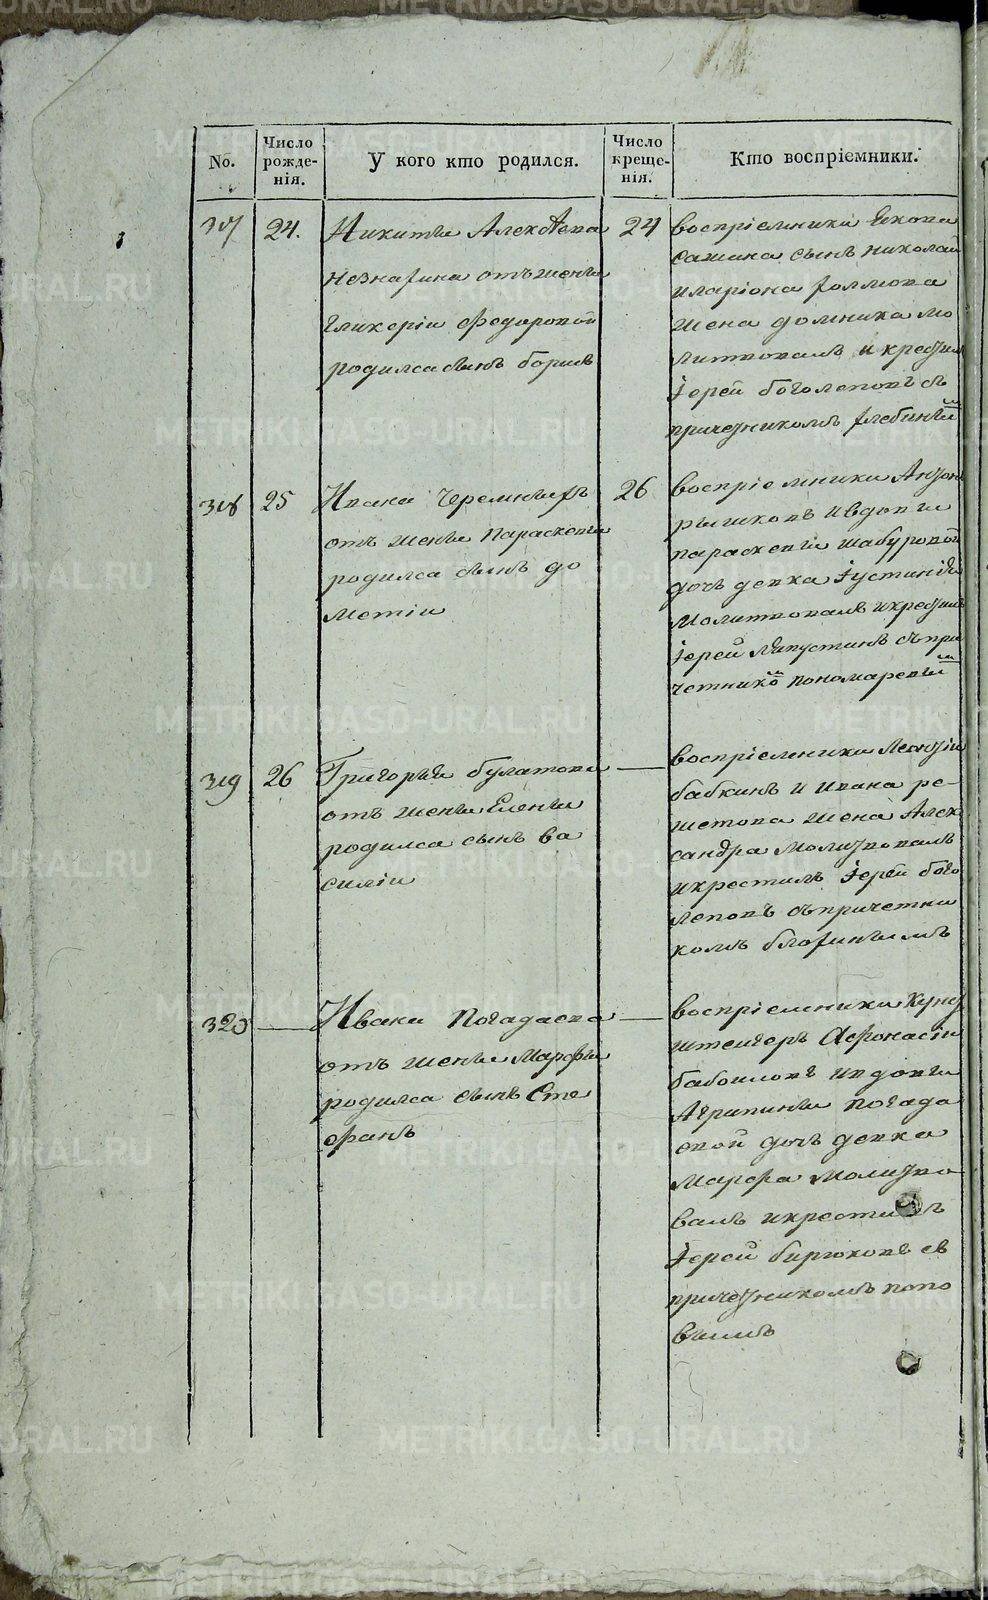 No.
Число рожденія.
У кого кто родился.
Число крещенія.
Кто воспріемники.
317
24.
Никиты Алексѣева
Незнаѣина отъ жены
Гликеріи Федоровой
родился сынъ борисъ
24
воспріемники Якова
сажина сынъ николай
иларіона
жена домника мо
литвовалъ и крестилъ
іерей боголеповъ съ
причетникомъ глебинымъ
318
25
Ивана Черемныхъ
отъ жены Параскевы
родился сынъ до
метіи
26
воспріемники Антонъ
рышковъ и вдовы
параскевы шабуровой
дочь девка іустинія
Молитвовалъ и крестилъ
іерей Ляпустинъ съ при
четникомъ пономаревымъ
319
26
Григорья булатова
отъ жены Елены
родился сынъ ва
силіи
воспріемники Леонтіи
бабкинъ и ивана ре-
шетова жена Алек
сандра Молитвовалъ
и крестилъ іерей бого
леповъ съ причетни
комъ
320
Ивана Погадаева
отъ жены Марфы
родился сынъ Сте
фанъ
воспріемники Кунст
штейгеръ Афонасіи
бабоиловъ и вдовы
Агрипины Погада
евой дочь девка
Марфа Молитво
валъ и крестилъ
іерей бирюковъ съ
причетникомъ попо
вымъ
METRIKI.GASO-URAL.RU